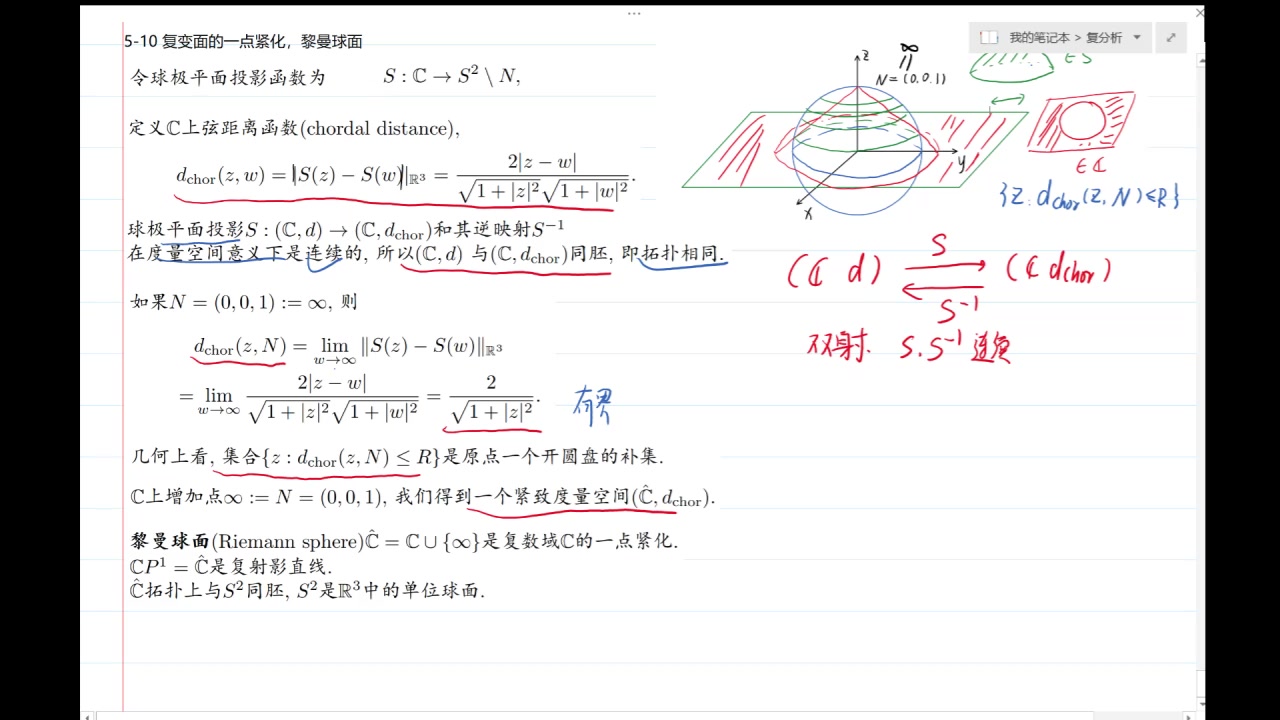 5-10 复变面的一点紧化，黎曼球面
我的笔记本 > 复分析
令球极平面投影函数为 S : ℂ → S² \ N,
定义ℂ上弦距离函数(chordal distance),
d_chor(z, w) = ‖S(z) − S(w)‖_ℝ³ = 2|z − w| / (√(1 + |z|²) √(1 + |w|²)).
球极平面投影S : (ℂ, d) → (ℂ, d_chor)和其逆映射S⁻¹
在度量空间意义下是连续的, 所以(ℂ, d) 与(ℂ, d_chor)同胚, 即拓扑相同.
如果N = (0, 0, 1) := ∞, 则
d_chor(z, N) = lim_{w→∞} ‖S(z) − S(w)‖_ℝ³
= lim_{w→∞} 2|z − w| / (√(1 + |z|²) √(1 + |w|²)) = 2 / √(1 + |z|²).
有界
几何上看, 集合{z : d_chor(z, N) ≤ R}是原点一个开圆盘的补集.
ℂ上增加点∞ := N = (0, 0, 1), 我们得到一个紧致度量空间(ℂ̂, d_chor).
黎曼球面(Riemann sphere)ℂ̂ = ℂ ∪ {∞}是复数域ℂ的一点紧化.
ℂP¹ = ℂ̂是复射影直线.
ℂ̂拓扑上与S²同胚, S²是ℝ³中的单位球面.
∞
z
N = (0, 0, 1)
∈ S
y
x
∈ ℂ
{z : d_chor(z, N) ≤ R}
(ℂ d) S (ℂ d_chor)
S⁻¹
双射. S. S⁻¹ 连续